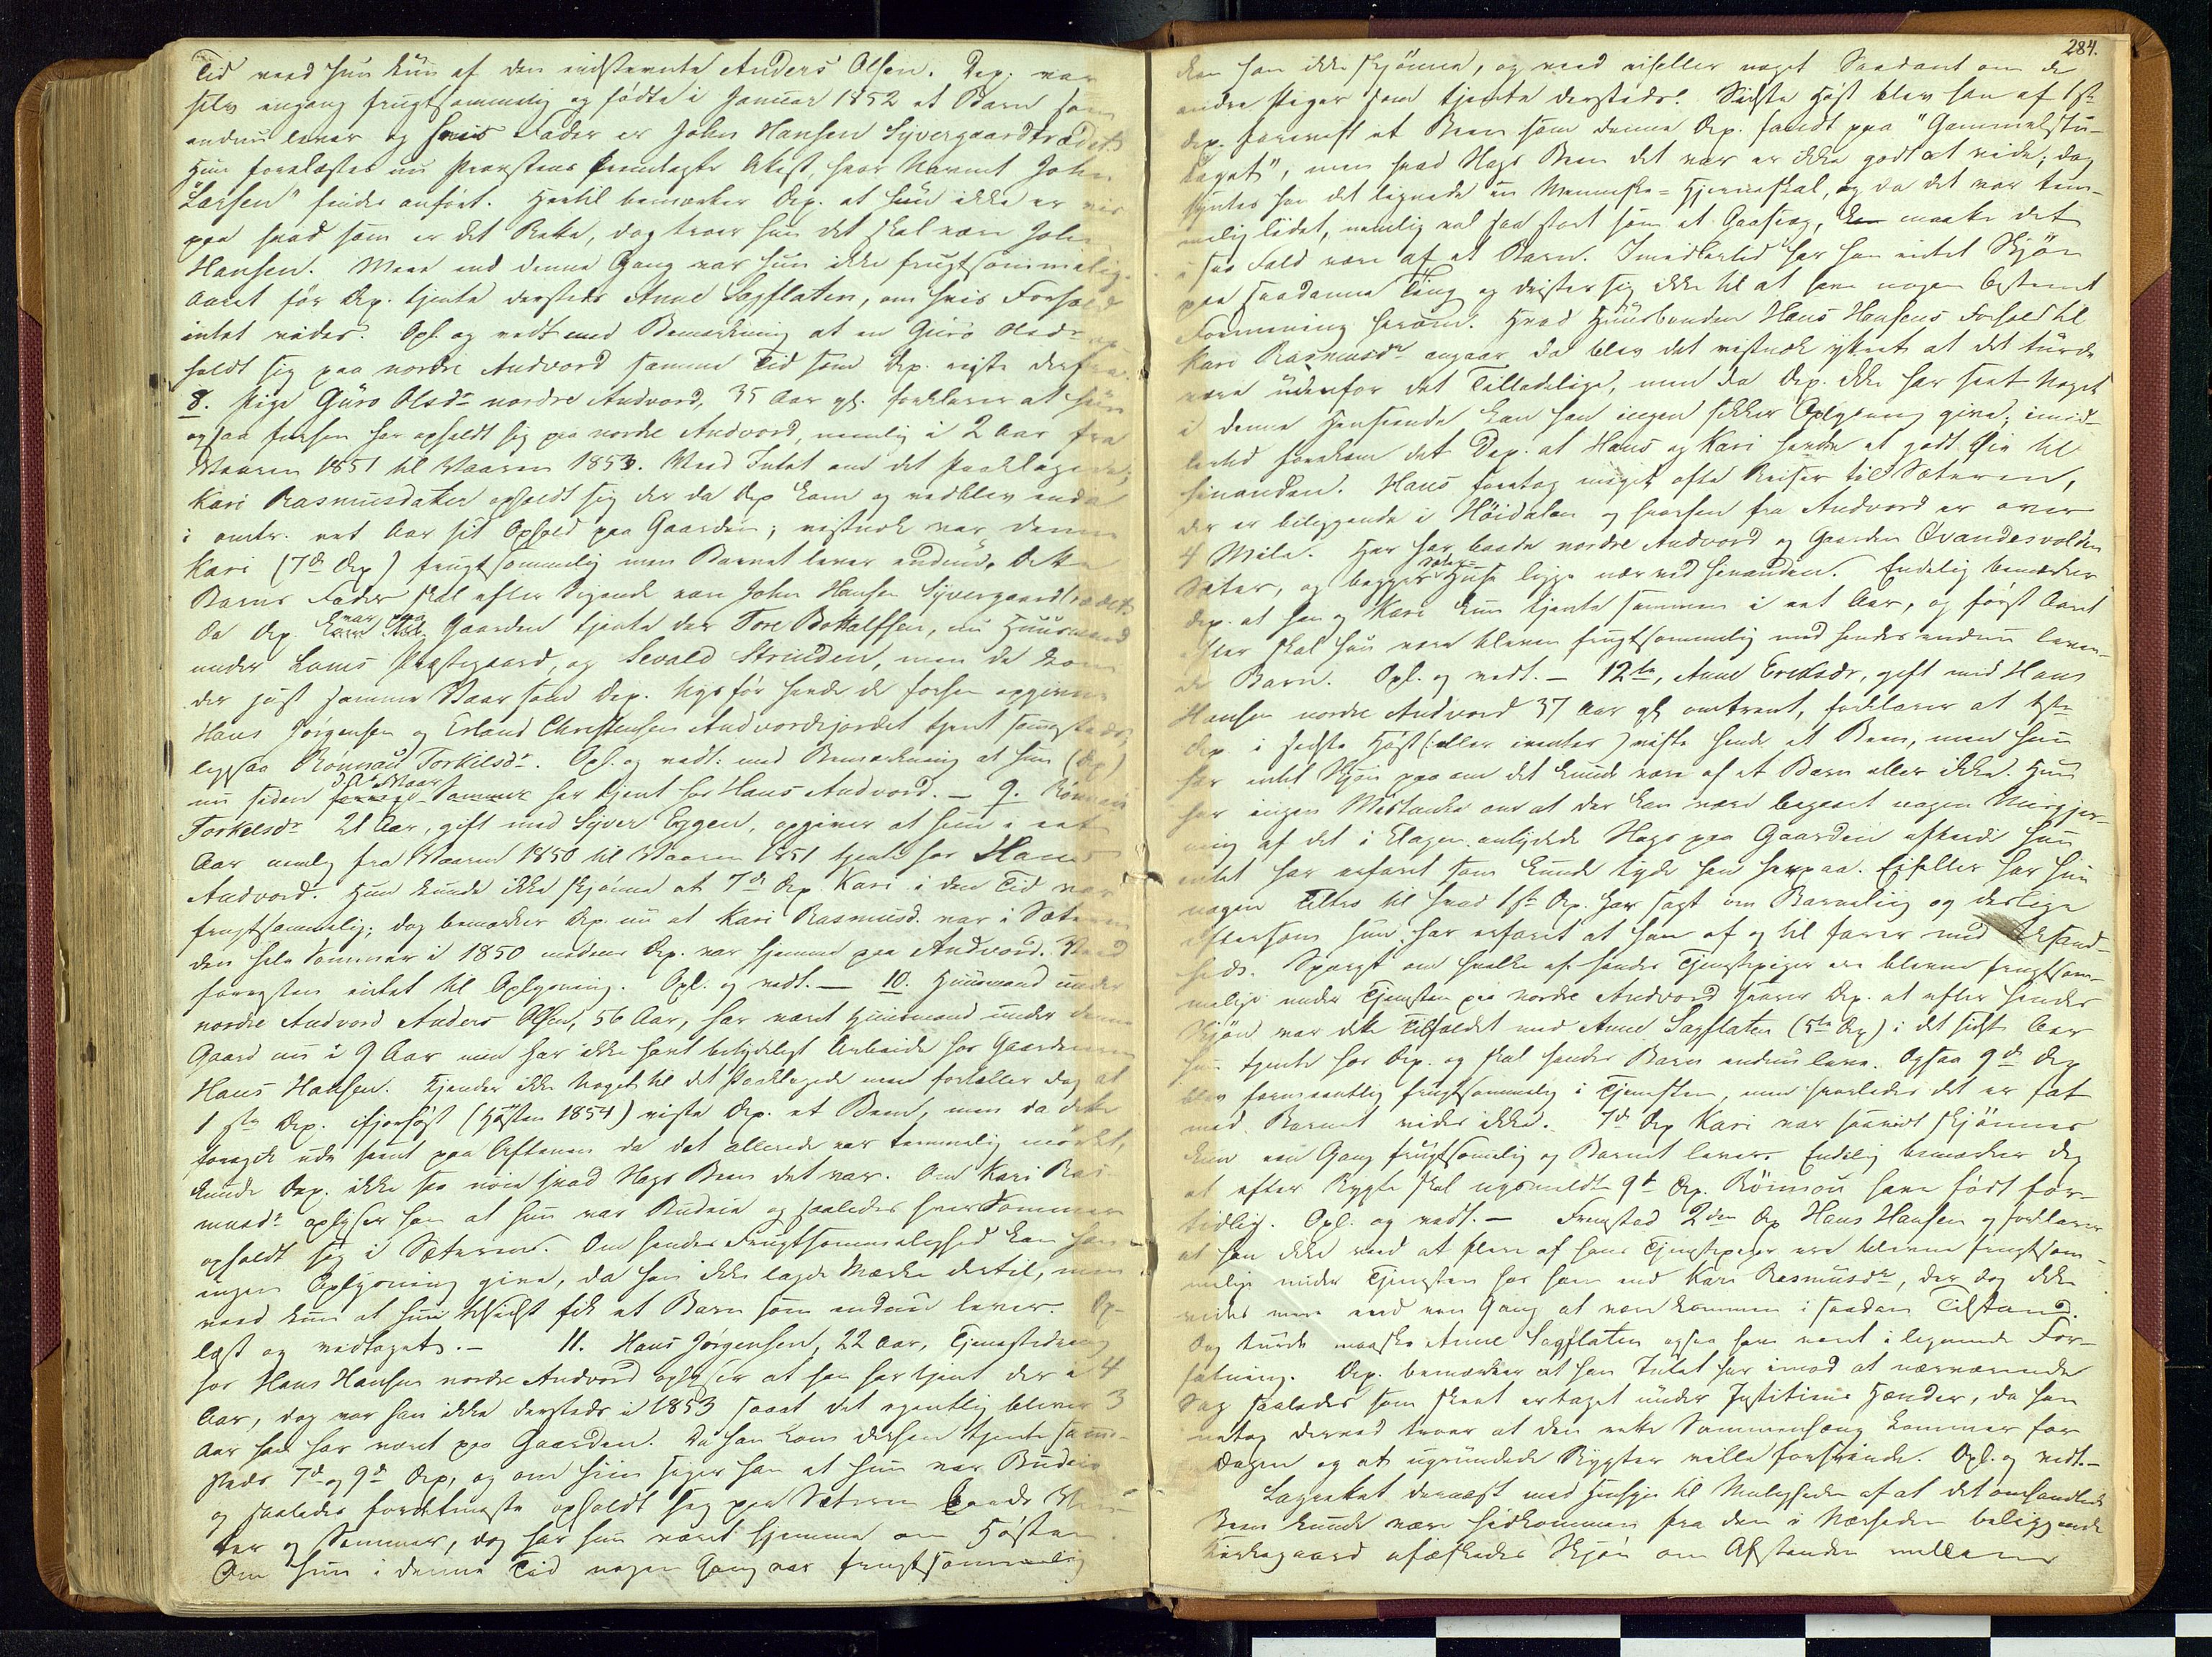 Tid veed hun kun af den indstevnte Anders Olsen. Dep. var
selv engang frugtsommelig og födte i Januar 1852 et Barn som
endnu lever og hvis Fader er John Hansen Syvergaardtrædet
Hun forelæstes nu Præstens fremlagte Attest, hvor Navnet John
"Larsen" findes anfört. Hertil bemærker Dep. at hun ikke er vis
paa hvad som er det Rette, dog troer hun det skal være John
Hansen. Meer end denne Gang var hun ikke frugtsommelig.
Aaret för Dep. tjente dersteds Anne Sagflaten, om hvis Forhold
intet vides. Opl. og vedt. med Bemærkning at en Guro Olsdr op-
holdt sig paa nordre Andvord samme Tid som Dep. reiste derfra.
8. Pige Guro Olsdr nordre Andvord, 35 Aar gl. forklarer at hun
ogsaa forhen har opholdt sig paa nordre Andvord, nemlig i 2 Aar fra
Vaaren 1851 til Vaaren 1853. Veed Intet om det Paaklagede;
Kari Rasmusdatter opholdt sig der da Dep. kom og vedblev endda
i omtr. eet Aar sit Ophold paa Gaarden; vistnok var denne
Kari (7de Dep) frugtsommelig men Barnet lever endnu. Dette
Barns Fader skal efter Sigende være John Hansen Syvergaardtrædet
Da Dep. var paa Gaarden tjente der Tore Bottolfsen, nu Huusmand
under Loms Præstegaard, og Sevald Strulden, men de kom
der just samme Vaar som Dep. Nys för havde de forhen opgivne
Hans Jörgensen og Erland Christensen Andvordsjordet tjent sammesteds,
ligesaa Rönnau Torkilsdr. Opl. og vedt. med Bemærkning at hun (Dep)
nu siden sidste Vaar har tjent hos Hans Andvord. — 9. Rönnau
Torkelsdr 21 Aar, gift med Syver Eggen, opgiver at hun i eet
Aar nemlig fra Vaaren 1850 til Vaaren 1851 tjente hos Hans
Andvord. Hun kunde ikke skjönne at 7de Dep. Kari i den Tid var
frugtsommelig; dog bemærker Dep. nu at Kari Rasmusd. var i Sæteren
den hele Sommer i 1850 medens Dep. var hjemme paa Andvord. Veed
forresten intet til Oplysning. Opl. og vedt. — 10. Huusmand under
nordre Andvord Anders Olsen, 56 Aar, har været Huusmand under denne
Gaard nu i 9 Aar men har ikke havt betydeligt Arbeide hos Gaardmanden
Hans Hansen. Kjender ikke Noget til det Paaklagede men fortæller dog at
1ste Dep. ifjorhöst (Hösten 1854) viste Dep. et Been, men da dette
foregik ude seent paa Aftenen da det allerede var temmelig mörkt,
kunde Dep. ikke see nöie hvad Slags Been det var. Om Kari Ras-
musdr oplyser han at hun var Budeie og saaledes hver Sommer
opholdt sig i Sæteren. Om hendes Frugtsommelighed kan han
ingen Oplysning give, da han ikke lagde Mærke dertil, men
veed kun at hun tilsidst fik et Barn som endnu lever. Op-
læst og vedtaget. — 11. Hans Jörgensen, 22 Aar, Tjenestedreng
hos Hans Hansen nordre Andvord oplyser at han har tjent der i 4
Aar, dog var han ikke dersteds i 1853 saaat det egentlig bliver 3
Aar han har været paa Gaarden. Da han kom dertil tjente samme-
steds 7de og 9de Dep, og om hin siger han at hun var Budeie
og saaledes fordetmeste opholdt sig paa Sæteren baade Vin-
ter og Sommer, dog har hun været hjemme om Hösten.
Om hun i denne Tid nogen Gang var frugtsommelig
284.
kan han ikke skjönne, og veed eiheller noget Saadant om de
andre Piger som tjente dersteds. Sidste Höst blev han af 1ste
Dep. foreviist et Been som denne Dep. fandt paa "Gammelstu-
taget", men hvad Slags Been det var er ikke godt at vide, dog
syntes han det lignede en Menneske-Hjerneskal, og da det var tem-
melig lidet, nemlig vel saa stort som et Gaaseæg, maatte det
i saa Fald være af et Barn. Imidlertid har han intet Skjön
paa saadanne Ting og drister sig ikke til at have nogen bestemt
Formening herom. Hvad Huusbonden Hans Hansens Forhold til
Kari Rasmusdr angaar da blev det vistnok ytret at det turde
være udenfor det Tilladelige, men da Dep. ikke har seet Noget
i denne Henseende kan han ingen sikker Oplysning give; imid-
lertid forekom det Dep. at Hans og Kari havde et godt Øie til
hinanden. Hans foretog meget ofte Reiser til Sæteren,
der er beliggende i Höidalen og hvorhen fra Andvord er over
4 Mile. Her har baade nordre Andvord og Gaarden Qvandesvolden
Sæter, og begges Sæter-Huse ligge nær ved hinanden. Endelig bemærker
Dep. at han og Kari kun tjente sammen i eet Aar, og först Aaret
efter skal hun være bleven frugtsommelig med hendes endnu leven-
de Barn. Opl. og vedt. — 12te, Anne Eriksdr, gift med Hans
Hansen nordre Andvord 37 Aar gl omtrent, forklarer at 1ste
Dep i sidste Höst (: eller ivinter) viste hende et Been, men hun
har intet Skjön paa om det kunde være af et Barn eller ikke. Hun
har ingen Mistanke om at der kan være begaaet nogen Misgjer-
ning af det i Klagen antydede Slags paa Gaarden eftersom hun
intet har erfaret som kunde tyde hen herpaa. Eiheller har hun
nogen Tiltro til hvad 1ste Dep. har sagt om Barneliig og deslige
eftersom hun har erfaret at han af og til farer med Usand-
hed. Spurgt om hvilke af hendes Tjenestepiger ere blevne frugtsom-
melige under Tjenesten paa nordre Andvord svarer Dep. at efter hendes
Skjön var dette Tilfældet med Anne Sagflaten (5te Dep) i det sidste Aar
hun tjente hos Dep. og skal hendes Barn endnu leve. Ogsaa 9de Dep
blev formeentlig frugtsommelig i Tjenesten, men hvorledes det er fat
med Barnet vides ikke. 7de Dep Kari var saavidt skjönnes
kun een Gang frugtsommelig og Barnet lever. Endelig bemærker Dep
at efter Rygte skal nysmeldte 9de Dep. Rönnau have födt for-
tidlig. Opl. og vedt. — Fremstod 2den Dep Hans Hansen og forklarer
at han ikke veed at flere af hans Tjenestepiger ere blevne frugtsom-
melige under Tjenesten hos ham end Kari Rasmusdr, der dog ikke
vides mere end een Gang at være kommen i saadan Tilstand.
Dog turde maaske Anne Sagflaten ogsaa have været i lignende For-
fatning. Dep. bemærker at han Intet har imod at nærværende
Sag saaledes som skeet er taget under Justitiens Hænder, da han
netop derved troer at den rette Sammenhæng kommer for
Dagen og at ugrundede Rygter ville forsvinde. Opl. og vedt. —
Lagrettet dernæst med Hensyn til Muligheden af at det omhandlede
Been kunde være hidkommen fra den i Nærheden beliggende
Kirkegaard afæskedes Skjön om Afstanden mellem